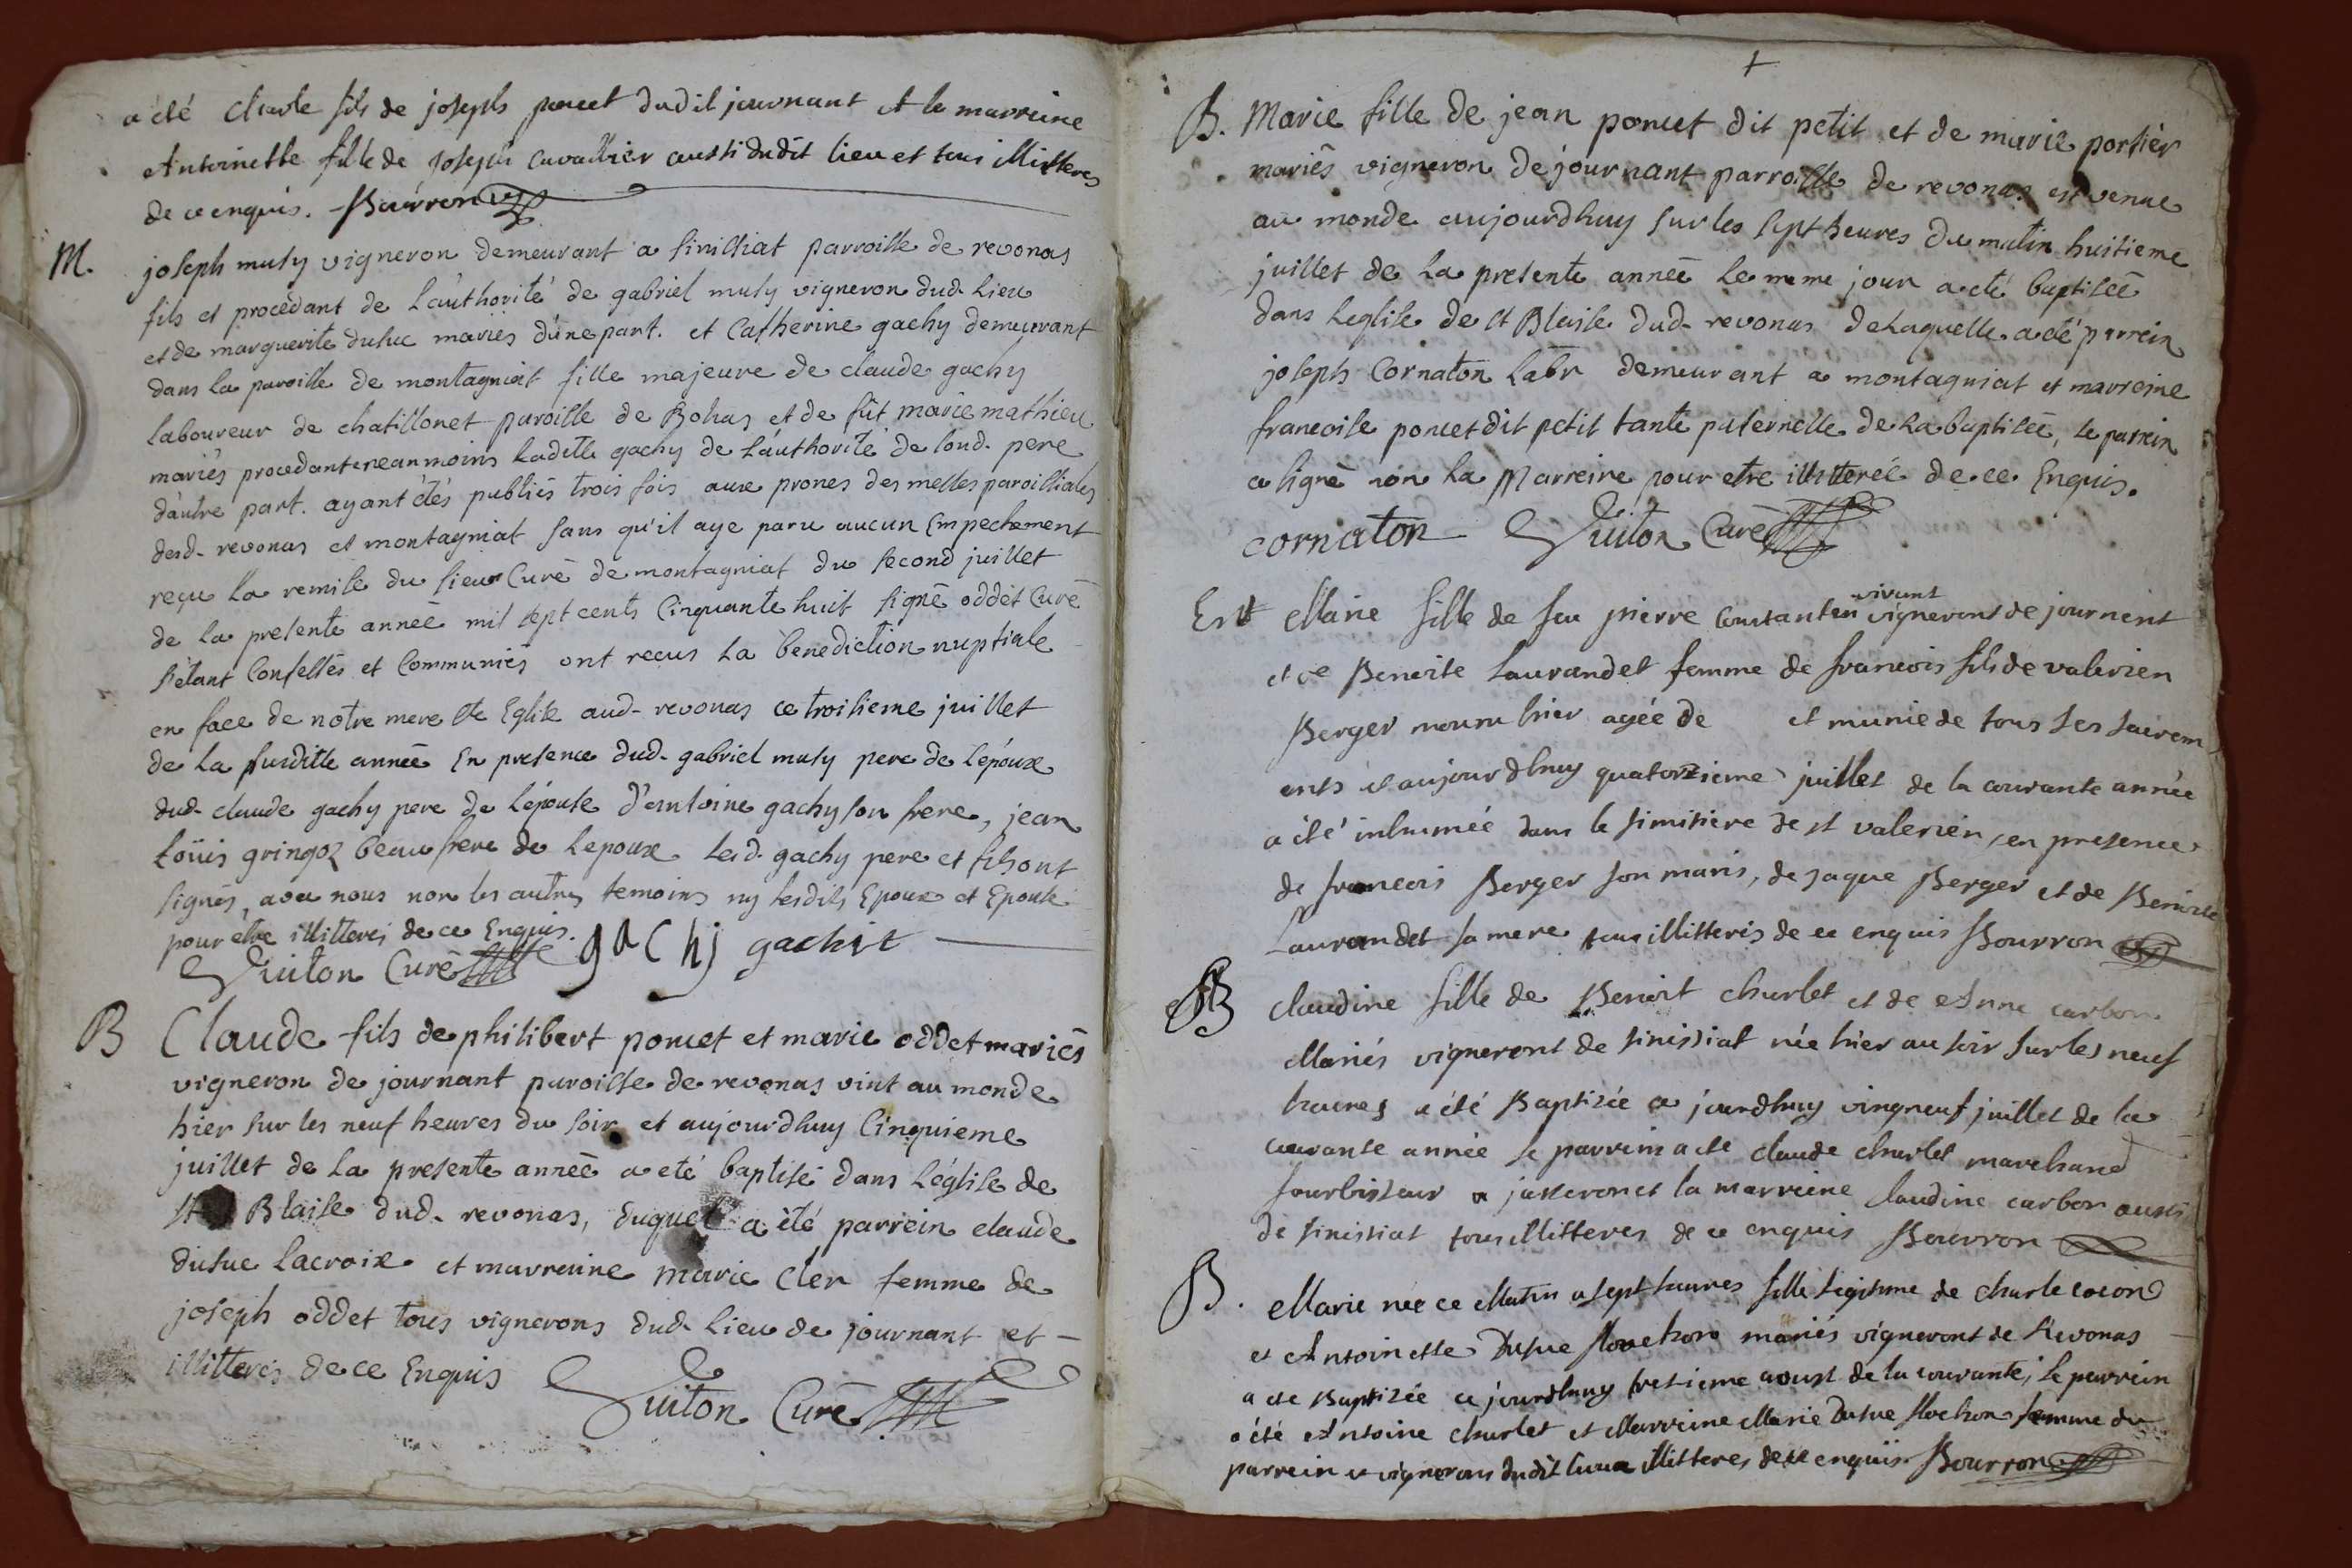 a été Charle fils de joseph poncet dudit journant et la marreine
Antoinette fille de Joseph cavallier aussi dudit lieu et tous illitteres
de ce enquis. Bourron
M. joseph musy vigneron demeurant a sinissiat parroisse de revonas
fils et procedant de l'authorité de gabriel musy vigneron dud. lieu
et de marguerite dusuc mariés d'une part. et Catherine gachy demeurant
dans la paroisse de montagniat fille majeure de claude gachy
laboureur de chatillonet paroisse de Bohas et de fût marie mathieu
mariés procedante neanmoins ladite gachy de l'authorité de sond. pere
d'autre part. ayant étés publiés trois fois aux prones des messes paroissiales
desd. revonas et montagniat sans qu'il aye paru aucun Empechement
reçu la remise du sieur Curé de montagniat du second juillet
de la presente année mil sept cents Cinquante huit signé oddet Curé
s'étant Confessés et Communiés ont reçus la benediction nuptiale
en face de notre mere Ste Eglise aud. revonas ce troisieme juillet
de la susditte année En presence dud. gabriel musy pere de l'epoux
dud. claude gachy pere de l'epouse d'antoine gachy son frere, jean
loüis gringoz beau frere de l'epoux lesd. gachy pere et fils ont
signés, avec nous non les autres temoins ny lesdits Epoux et Epouse
pour etre illitterés de ce Enquis. gachj gachit
Guiton Curé
B Claude fils de philibert poncet et marie oddet mariés
vigneron de journant paroisse de revonas vint au monde
hier sur les neuf heures du soir et aujourdhuy Cinquieme
juillet de la presente année a eté baptisé dans l'église de
St Blaise dud. revonas, duquel a été parrein claude
dusuc lacroix et marreine marie Cler femme de
joseph oddet tous vignerons dud. lieu de journant et
illitterés de ce Enquis Guiton Curé
B. Marie fille de jean poncet dit petit et de marie portier
mariés vigneron de journant parroisse de revonas est venue
au monde aujourdhuy sur les sept heures du matin huitieme
juillet de la presente année le meme jour a eté baptisée
dans l'eglise de st Blaise dud. revonas de laquelle a été parrein
joseph Cornaton labr demeurant a montagniat et marreine
francoise poncet dit petit tante paternelle de la baptisée, le parrein
a signé non la Marreine pour etre illitterée de ce Enquis.
cornaton Guiton Curé
Ent Marie fille de feu pierre Constantin vivant vigneront de journent
et de Benoite Laurandet femme de francois fils de valerien
Berger mouru hier agée de et munie de tous ses sacrem
ents et aujourdhuy quatorzieme juillet de la courante année
a été inhumée dans le simitiere de st valerien, en presence
de francois Berger son maris, de jaque Berger et de Benoite
Laurandet sa mere tous illitteris de ce enquis Bourron
B claudine fille de Benoit charlet et de Anne carbon
Mariés vigneront de sinissiat née hier au soir sur les neuf
heures a été Baptizée a jourdhuy vingneuf juillet de la
courante année le parrein a été claude charlet marchand
fourbisseur a jasseron et la marreine claudine carbon aussi
de sinissiat tous illitteres de ce enquis Bourron
B. Marie née ce Matin a sept heures fille legitime de charle cocon
et Antoinette Dusuc Mochon mariés vigneront de Revonas
a été Baptizée ce jourdhuy tresieme aoust de la courante, le parrein
a été Antoine charlet et Marreine Marie Dusuc Mochon femme du
parrein et vignerons dudit lieu illitteres de ce enquis Bourron